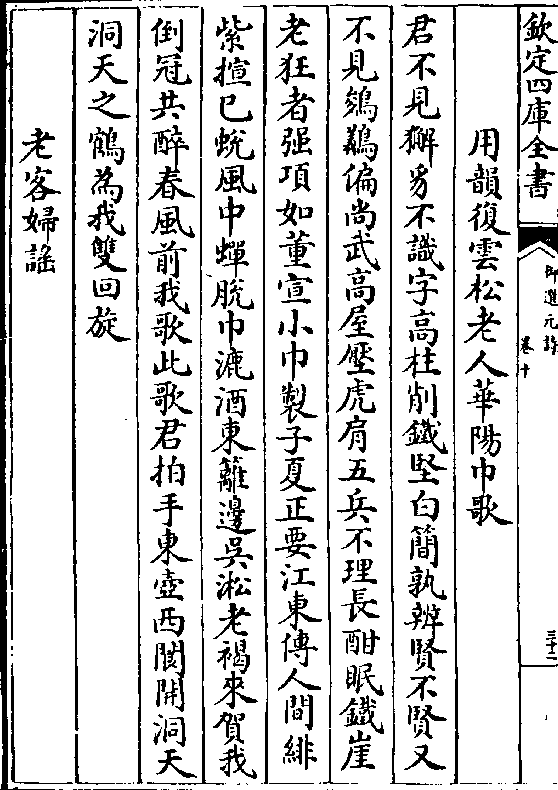 欽定四庫全書
御選元詩
卷十
三十二
用韻復雲松老人華陽巾歌
君不見獬豸不識字高柱削鐵堅白簡孰辨賢不賢又
不見鵕鸃偏尚武高屋壓虎肩五兵不理長酣眠鐵崖
老狂者强項如董宣小巾製子夏正要江東傳人間緋
紫擅已蛻風巾蟬脫巾漉酒東籬邊吳淞老褐來賀我
倒冠共醉春風前我歌此歌君拍手東壺西闅開洞天
洞天之鶴為我雙回旋
老客婦謠